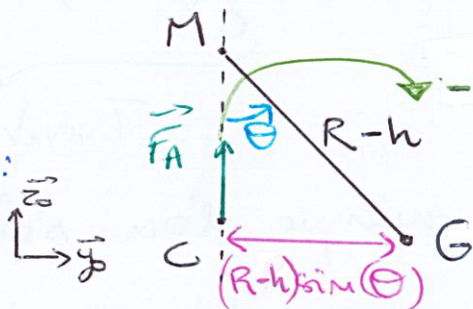 M
F_A
θ
R-h
z₀
y₀
C
G
(R-h)sin(θ)